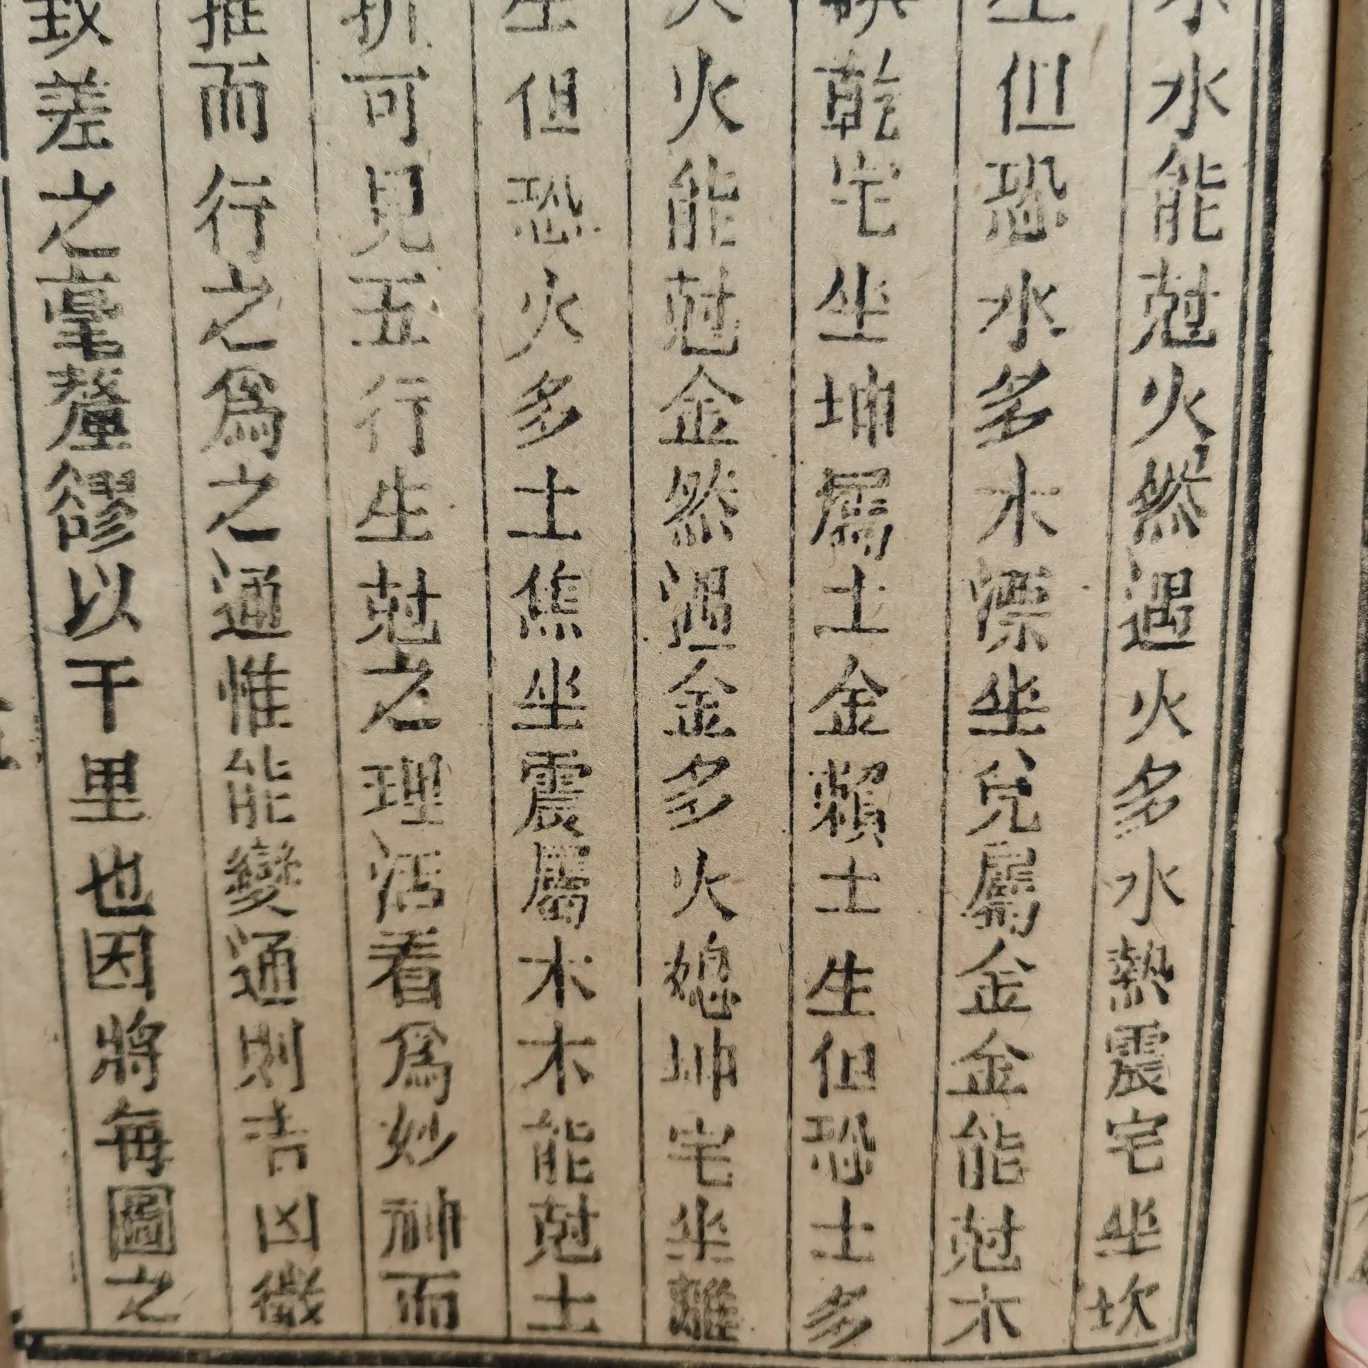 水水能尅火然遇火多水熱震宅坐坎
生但恐水多木漂坐兌屬金金能尅木
乾宅坐坤屬土金賴土生但恐土多
火火能尅金然遇金多火熄坤宅坐離
生但恐火多土焦坐震屬木木能尅土
折可見五行生尅之理活看爲妙神而
推而行之爲之通惟能變通則吉凶徵
致差之毫釐謬以千里也因將每圖之